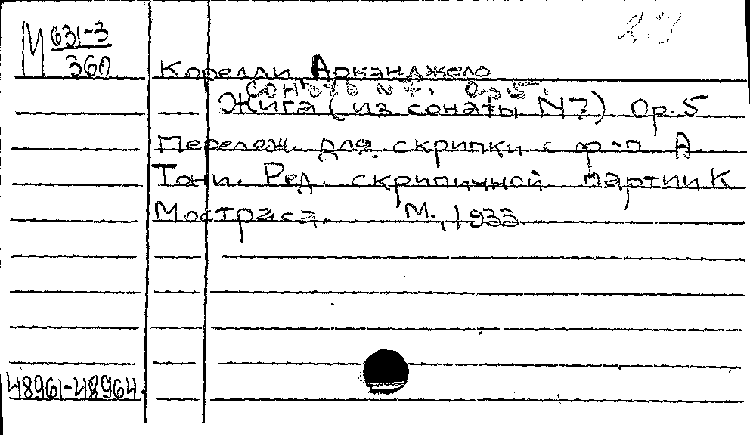 М 631-3
360
Корелли Арканджело
Соната N 7. Op. 5.
Жига (из сонаты N7) Op. 5
Перелож. для скрипки с ф-п А
Тони. Ред. скрипичной партии К
Мостраса. М., 1933
48961-48964